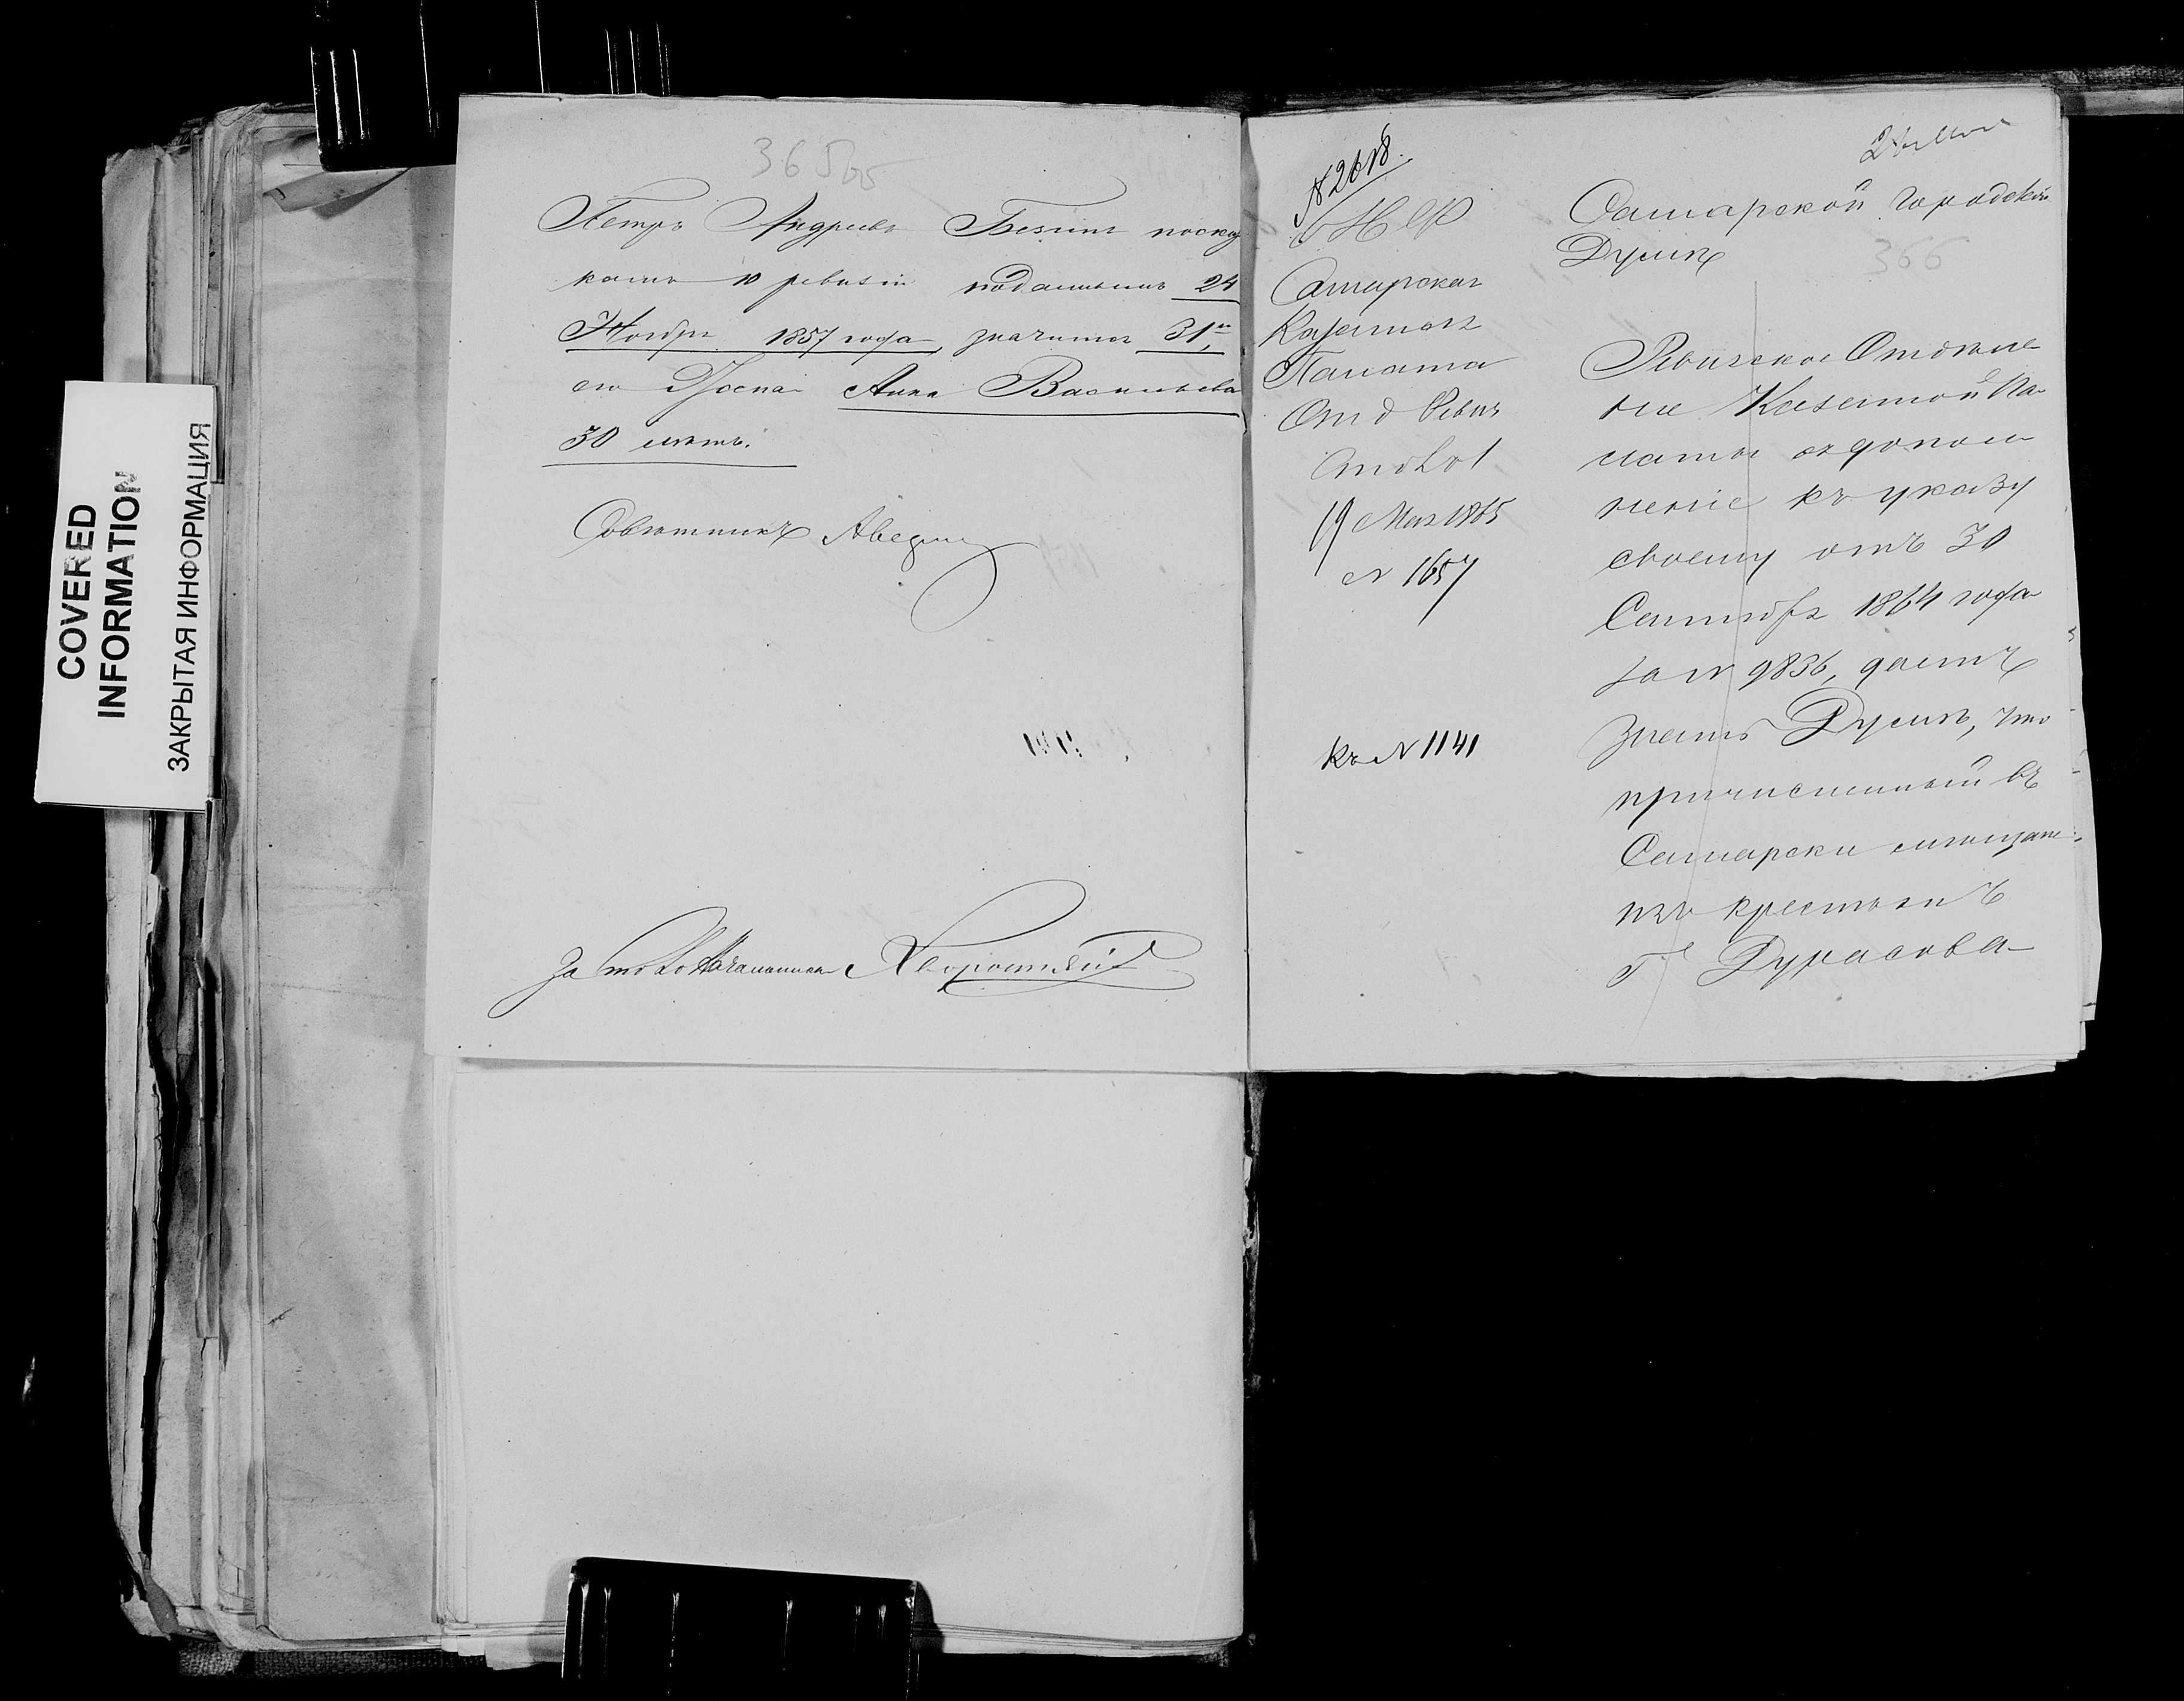 COVERED
INFORMATION
ЗАКРЫТАЯ ИНФОРМАЦИЯ
365
Петръ Андреевъ Безинъ по ска
камъ 10 ревизіи поданнымъ 24
Ноября 1857 года, значится 31,
его Жена Анна Васильева
30 летъ.
Совѣтникъ
За Столоначальника
№ 2618.
М Ф
Самарская
Казенная
Палата
Отд Ревиз
Столъ 1
19 Мая 1865
№ 1657
къ № 1141
366
Самарской городской
Думѣ
Ревизское Отдѣле
ніе Казенной Па
латы въ допол
неніе къ указу
своему отъ 30
Сентября 1864 года
за № 9836, даетъ
знать Думѣ, что
причисленный въ
Самарскіе мѣщане
изъ крестьянъ
Г Дурасова